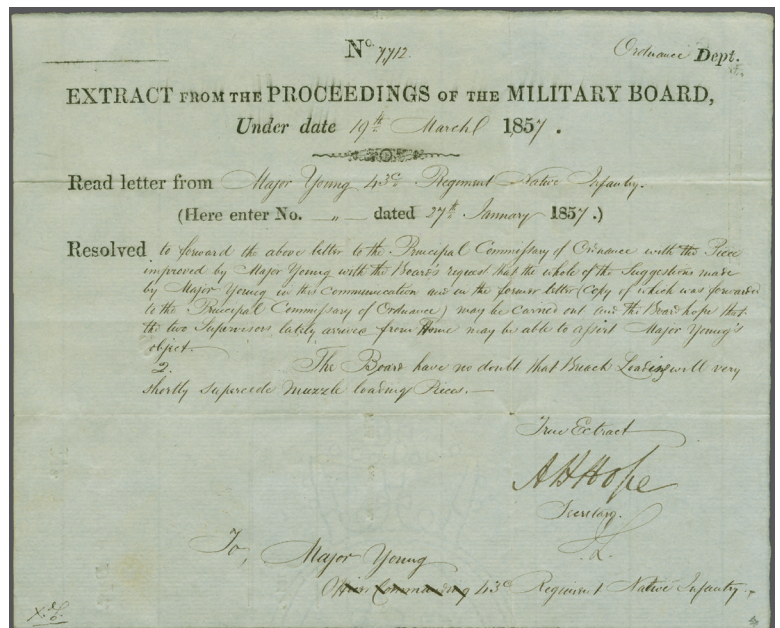 No. 7712.
Ordnance Dept.
EXTRACT FROM THE PROCEEDINGS OF THE MILITARY BOARD,
Under date 19th March 1857.
Read letter from Major Young 43d Regiment Native Infantry.
(Here enter No. — „ — dated 27th January 1857.)
Resolved to forward the above letter to the Principal Commissary of Ordnance with the Piece
improved by Major Young with the Board's request that the whole of the Suggestions made
by Major Young in this communication and in the former letter (Copy of which was forwarded
to the Principal Commissary of Ordnance) may be carried out and the Board hope that
the two Supervisors lately arrived from Home may be able to assist Major Young's
object.
2. The Board have no doubt that Breach Loading will very
shortly supercede muzzle loading Pieces.—
True Extract
A H Hope
Secretary.
To,
Major Young
Officer Commanding 43d Regiment Native Infantry.